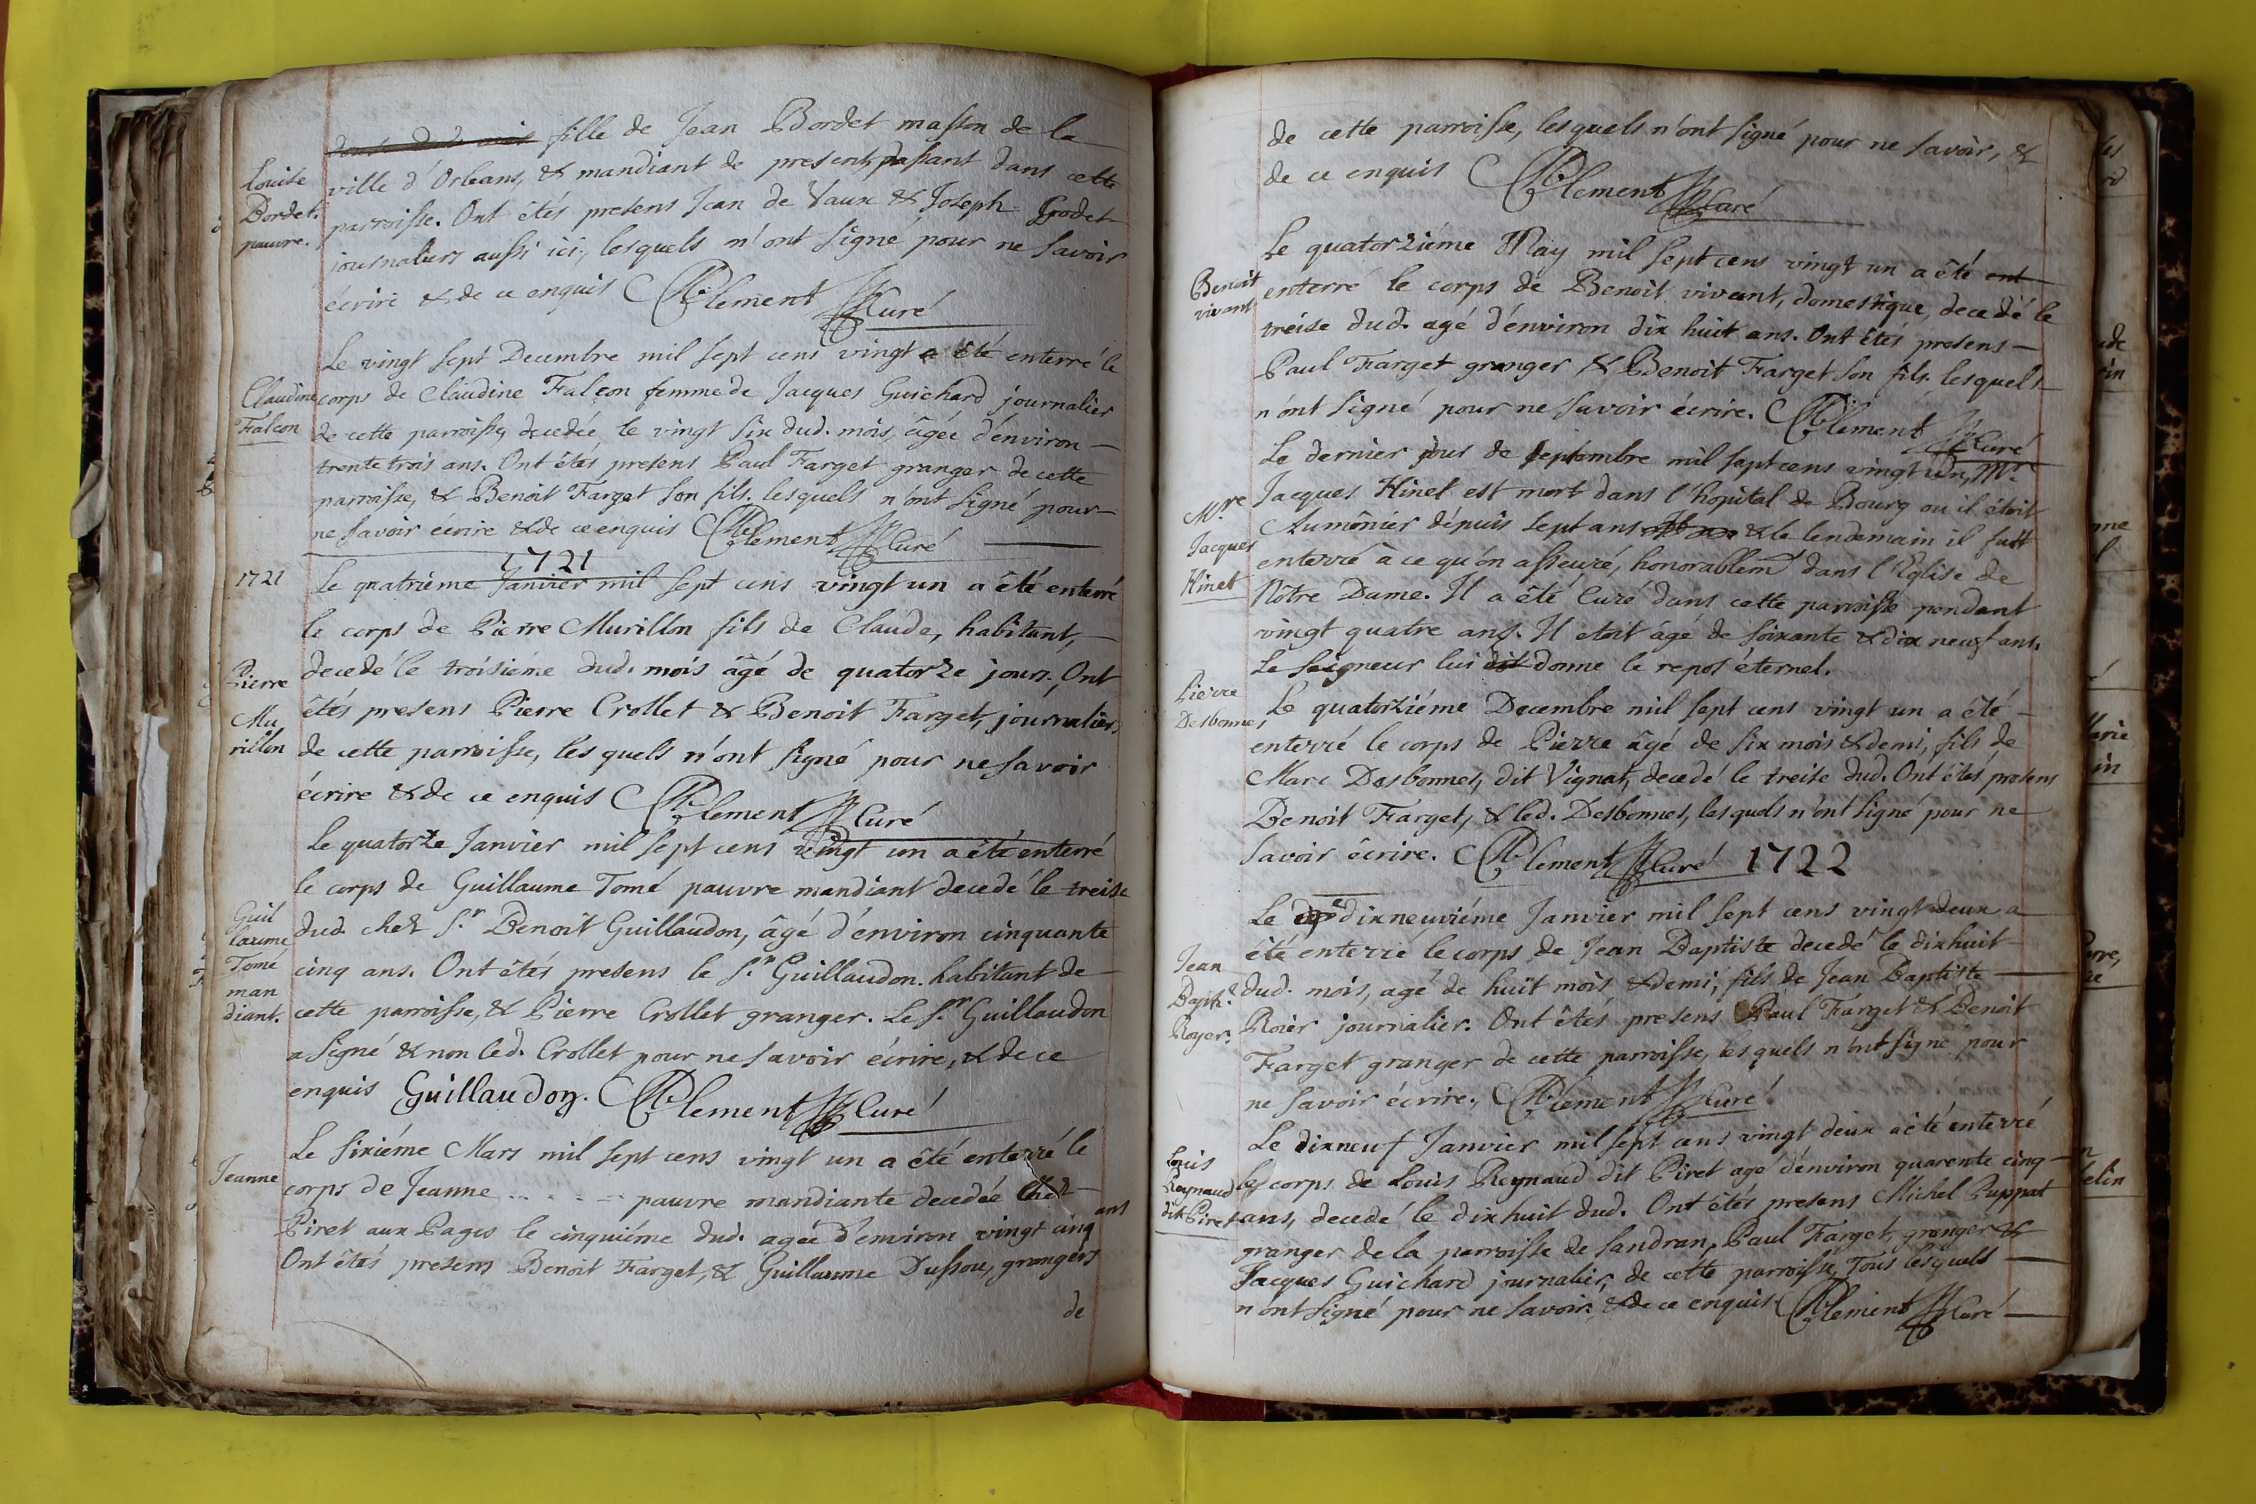 fille de Jean Bordet masson de la
Louise
Bordet.
pauvre.
ville d'Orleans, & mandiant de present passant dans cette
parroisse. Ont étés presens Jean de Vaux & Joseph Godet
journaliers aussi ici, lesquels n'ont signé pour ne savoir
écrire & de ce enquis Clement Curé
Claudine
Falcon
Le vingt sept Decembre mil sept cens vingt a été enterré le
corps de Claudine Falcon femme de Jacques Guichard journalier
de cette parroisse, decedée le vingt six dud. mois, âgée d'environ
trente trois ans. Ont étés presens Paul Farget granger de cette
parroisse, & Benoit Farget son fils. lesquels n'ont signé pour
ne savoir écrire & de ce enquis Clement Curé
1721
1721
Le quatrième Janvier mil sept cens vingt un a été enterré
le corps de Pierre Murillon fils de Claude, habitant,
Pierre
Mu
rillon
decedé le troisième dud. mois âgé de quatorze jours, Ont
étés presens Pierre Crollet & Benoit Farget, journaliers
de cette parroisse, lesquels n'ont signé pour ne savoir
écrire & de ce enquis Clement Curé
Le quatorze Janvier mil sept cens vingt un a été enterré
le corps de Guillaume Tomé pauvre mandiant decedé le treise
Guil
laume
Tomé
man
diant.
dud. chez Sr. Benoit Guillaudon, âgé d'environ cinquante
cinq ans. Ont étés presens le Sr. Guillaudon habitant de
cette parroisse, & Pierre Crollet granger. Le Sr. Guillaudon
a signé & non led. Crollet pour ne savoir écrire, & de ce
enquis Guillaudon. Clement Curé
Jeanne
Le sixiéme Mars mil sept cens vingt un a été enterré le
corps de Jeanne .. . . . pauvre mandiante decedée chez
Piret aux Pages le cinquiéme dud. agée d'environ vingt cinq ans
Ont étés presens Benoit Farget, & Guillaume Dussou, grangers
de
de cette parroisse, lesquels n'ont signé pour ne savoir, &
de ce enquis Clement Curé
Benoit
vivant
Le quatorziéme May mil sept cens vingt un a été ent
enterré le corps de Benoit vivant, domestique, decedé le
treise dud. agé d'environ dix huit ans. Ont étés presens
Paul Farget granger & Benoit Farget son fils. lesquels
n'ont signé pour ne savoir écrire. Clement Curé
Mre
Jacques
Hinet
Le dernier jour de septembre mil sept cens vingt un, Mre.
Jacques Hinet est mort dans l'hopital de Bourg ou il étoit
Aumônier dépuis sept ans & le lendemain il futt
enterré à ce qu'on asseuré, honorablemt dans l'Eglise de
Nôtre Dame. Il a été Curé dans cette parroisse pendant
vingt quatre ans. Il etoit âgé de soixante & dix neuf ans.
Le seigneur lui dit donne le repos éternel.
Pierre
Desbonnes
Le quatorziéme Decembre mil sept cens vingt un a été
enterré le corps de Pierre âgé de six mois & demi, fils de
Marc Desbonnes, dit Vignat, decedé le treise dud. Ont étés presens
Benoit Farget, & led. Desbonnes, lesquels n'ont signé pour ne
savoir écrire. Clement Curé 1722
Le dixneuviéme Janvier mil sept cens vingt deux a
Jean
Bapt.
Royer.
été enterré le corps de Jean Baptiste decedé le dixhuit
dud. mois, agé de huit mois & demi, fils de Jean Baptiste
Roier journalier. Ont étés presens Paul Farget & Benoit
Farget granger de cette parroisse, lesquels n'ont signé pour
ne savoir écrire. Clement Curé
Louis
Reynaud
dit Piret
Le dixneuf Janvier mil sept cens vingt deux a été enterré
le corps de Louis Reynaud dit Piret agé d'environ quarente cinq
ans, decedé le dixhuit dud. Ont étés presens Michel Puppat
granger de la parroisse de Sandran, Paul Farget, granger &
Jacques Guichard journalier, de cette parroisse, Tous lesquels
n'ont signé pour ne savoir, & de ce enquis Clement Curé